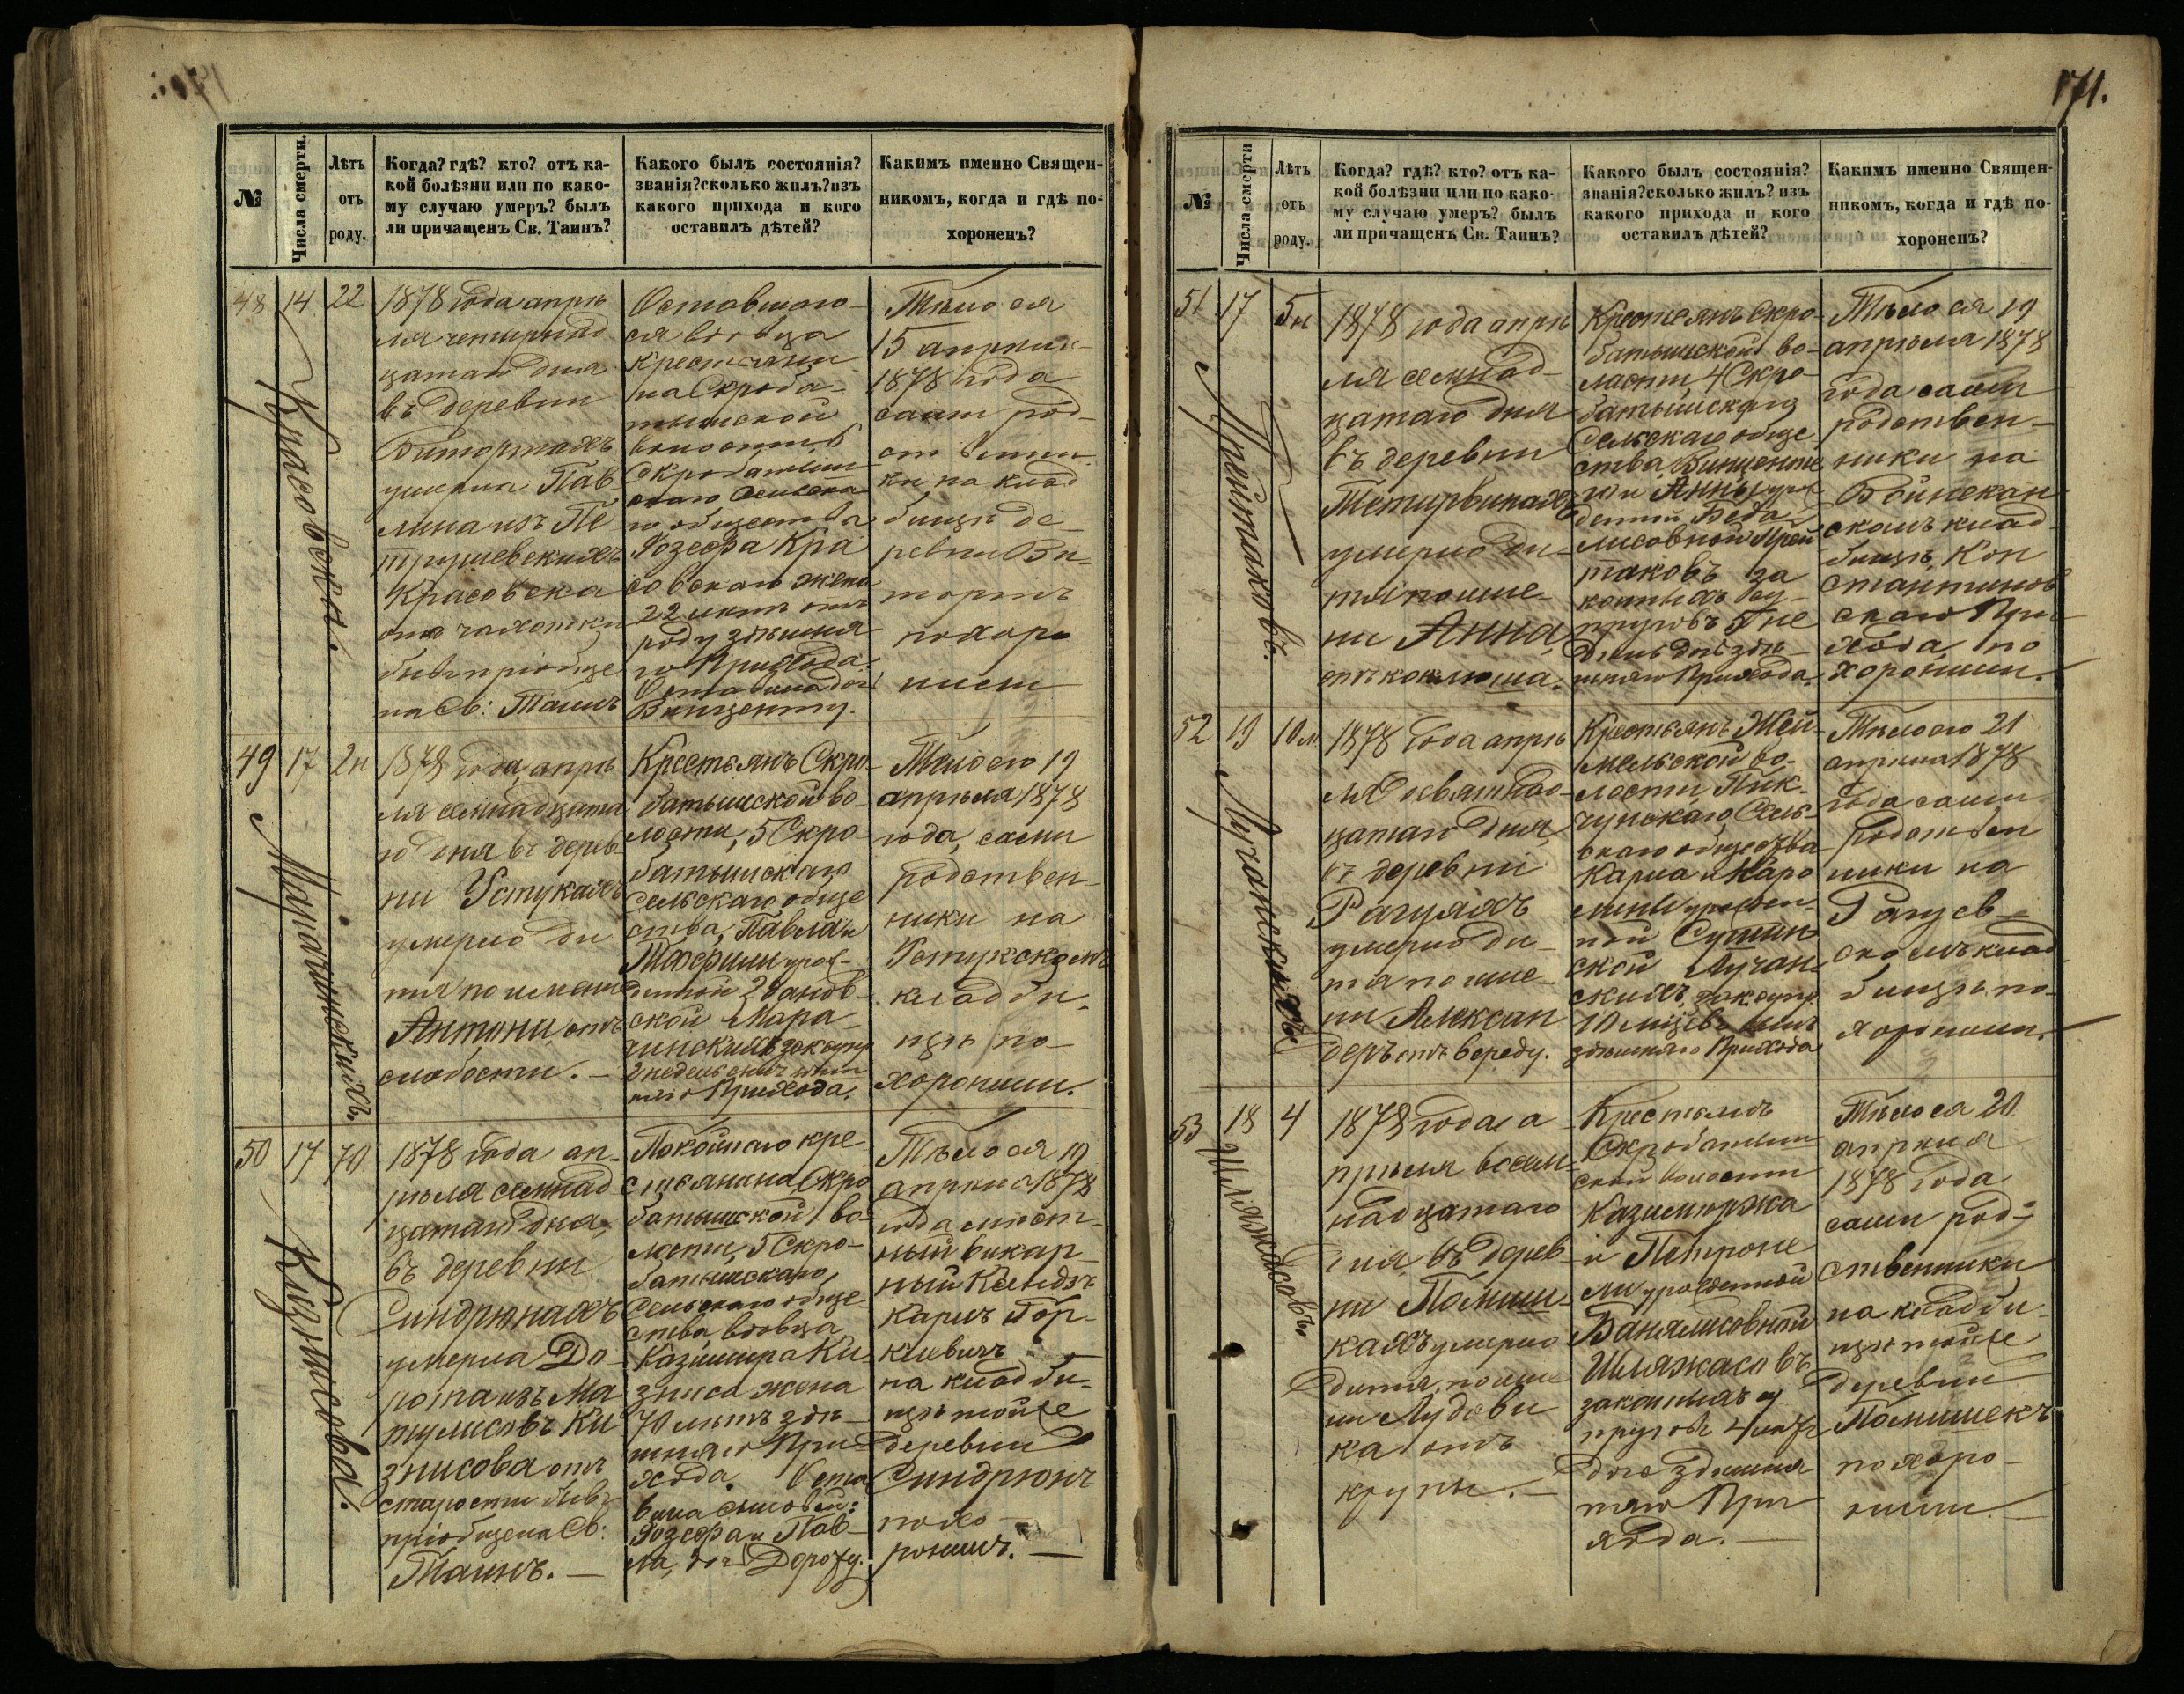 171.
№
Числа смерти.
Лѣтъ
отъ
роду.
Когда? гдѣ? кто? отъ ка-
кой болѣзни или по како-
му случаю умеръ? былъ
ли причащенъ Св. Таинъ?
Какого былъ состоянія?
званія? сколько жилъ? изъ
какого прихода и кого
оставилъ дѣтей?
Какимъ именно Священ-
никомъ, когда и гдѣ по-
хороненъ?
48
14
22
Красовска.
1878 года апрѣ
ля четырнад
цатаго дня
въ деревни
умерла Пав
лина изъ Пе
трушевскихъ
Красовска
отъ чахотки
бывъ пріобще
на Св: Таинъ
Оставшаго-
ся вдовца
крестьяни
на Скроба-
тышской
волости, 5
Скробатыш
скаго Сельска
го общества
Іозефа Кра
совскаго жена
22 лѣтъ отъ
роду здѣшня
го Прихода.
Оставила доч
Винценту.
Тѣло ея
15 апрѣля
1878 года
сами род-
ственни
ки на клад
бищѣ де-
ревни Ви-
торты
похоро
нили
49
17
2 н
1878 года апрѣ
ля семнадцата
го дня въ дерев-
ни Устукахъ
умерло ди
тя по имени
Антони, отъ
слабости. —
Крестьянъ Скро-
батышской во-
лости, 5 Скро-
батышскаго
Сельскаго обще
ства, Павла и
Теофили урож-
денной
ской Мара-
чинскихъ закон су
2 недель сынъ здѣш
няго Прихода.
Тѣло его 19
апрѣля 1878
года, сами
родствен-
ники на
Устукскомъ
кладби-
щѣ по-
хоронили.
50
17
70
Кизнисова.
1878 года ап-
рѣля семнад
цатаго дня,
въ деревни
Синдрюнахъ
умерла До-
рота изъ Ма
тулисовъ Ки
знисова отъ
старости бывъ
пріобщена Св:
Таинъ. —
Покойнаго кре
стьянина Скро
батышской во-
лости, 5 Скро-
батышскаго,
Сельскаго обще-
ства, вдовца
Казимира Ки-
зниса жена
70 лѣтъ здѣ-
шняго При-
хода. Оста
вила сыновей:
Іозефа и Пав-
ла, доч Дороту.
Тѣло ея 19
апрѣля 1878
года мѣст-
ный викар-
ный Ксендзъ
Карлъ Гор-
кевичъ
на кладби-
щѣ тойже
деревни
Синдрюнъ
похо-
ронилъ. —
№
Числа смерти
Лѣтъ
отъ
роду.
Когда? гдѣ? кто? отъ ка-
кой болѣзни или по како-
му случаю умеръ? былъ
ли причащенъ Св. Таинъ?
Какого былъ состоянія?
званія? сколько жилъ? изъ
какого прихода и кого
оставилъ дѣтей?
Какимъ именно Священ-
никомъ, когда и гдѣ по-
хороненъ?
51
17
5 н
Прейтаковъ.
1878 года апрѣ
ля семнад-
цатаго дня
въ деревни
Тетирвинахъ
умерло ди-
тя по име-
ни Анна,
отъ коклюша.
Крестьянъ Скро-
батышской во-
лости, 4 Скро-
батышскаго
Сельскаго обще
ства, Винценте
го и Анны урож
денной
лисовной Прей
таковъ за
конныхъ су-
пруговъ 5 не
дель дочь здѣ-
шняго Прихода.
Тѣло ея 19
апрѣля 1878
года сами
родствен-
ники на
Войнекан
скомъ клад-
бищѣ, Кон
стантинов
скаго При-
хода, по
хоронили.
52
19
10 м
Лучанскихъ
1878 года апрѣ
ля девятнад-
цатаго дня,
въ деревни
Рагуляхъ
умерло ди-
тя по име-
ни Алексан
деръ отъ вереду.
Крестьянъ Жей-
мельской во-
лости,
Сель-
скаго общества
Карла и Каро
лины урожден-
ной
ской Лучан-
скихъ, закон супр
10 мѣсцевъ сынъ
здѣшняго Прихода
Тѣло его 21
апрѣля 1878
года сами
родствен
ники на
скомъ клад
бищѣ по-
хоронили.
53
18
4
Шляжасовъ.
1878 года а
прѣля восем-
надцатаго
дня въ дерев-
ни Помуш-
кахъ умерло
дитя, по име
ни Лудови
ка отъ
крупы. —
Крестьянъ
Скробатыш
ской волости
Казимержа
и Петроне
ли урожденной
Шляжасовъ
законныхъ су
пруговъ 4 лѣтъ
доч здѣшня
го При
хода. —
Тѣло ея 20
апрѣля
1878 года
сами род-
ственники
на кладби-
щѣ тойже
деревни
Помушекъ
похоро-
нили. —